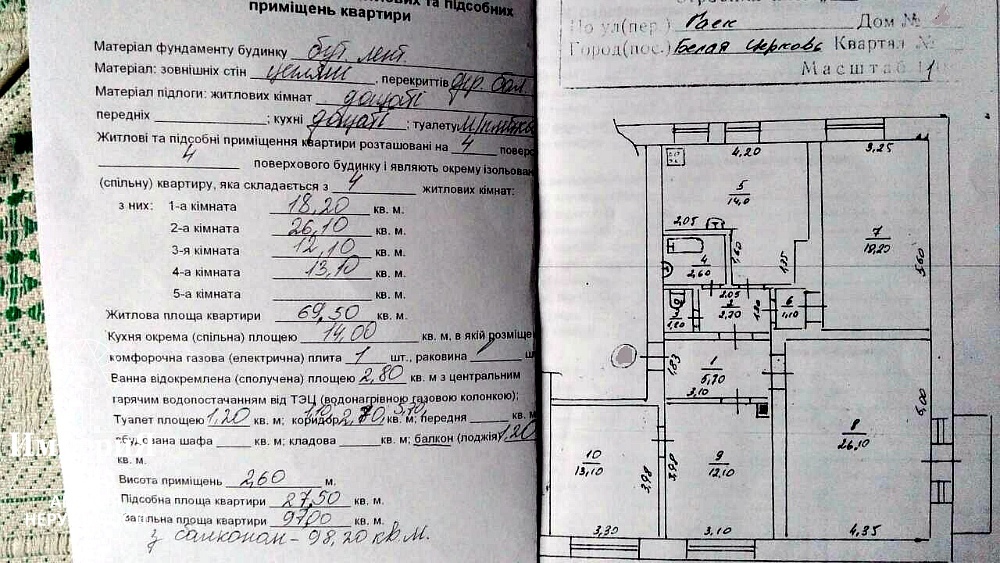 приміщень квартири
Матеріал фундаменту будинку бут. лент.
Матеріал: зовнішніх стін цеглян , перекриттів дер. бал.
Матеріал підлоги: житлових кімнат дощаті
передніх ; кухні дощаті ; туалету
Житлові та підсобні приміщення квартири розташовані на 4 поверсі
4 поверхового будинку і являють окрему ізольовану
(спільну) квартиру, яка складається з 4 житлових кімнат:
з них: 1-а кімната 18,20 кв. м.
2-а кімната 26,10 кв. м.
3-я кімната 12,10 кв. м.
4-а кімната 13,10 кв. м.
5-а кімната кв. м.
Житлова площа квартири 69,50 кв. м.
Кухня окрема (спільна) площею 14,00 кв. м, в якій розміще
комфорочна газова (електрична) плита 1 шт., раковина ш
Ванна відокремлена (сполучена) площею 2,80 кв. м з центральним
гарячим водопостачанням від ТЭЦ (водонагрівною газовою колонкою);
Туалет площею 1,20 кв. м; коридор 1,10 2,70, 5,70 кв. м; передня кв. м
шафа кв. м; кладова кв. м; балкон (лоджія) 1,20
кв. м.
Висота приміщень 2,60 м.
Підсобна площа квартири 27,50 кв. м.
загальна площа квартири 97,00 кв. м.
з балконом - 98,20 кв.м.
По ул(пер.) Дом №
Город(пос.) Белая Церковь Квартал №
Масштаб 1
4,20
3,25
5
14,0
2,05
7
18,20
5,60
4
2,60
1,60
1,35
2,05
2
2,20
1,20
6
1,10
1,83
1
5,70
3,10
6,00
8
26,10
10
13,10
3,98
3,98
9
12,10
3,30
3,10
4,35